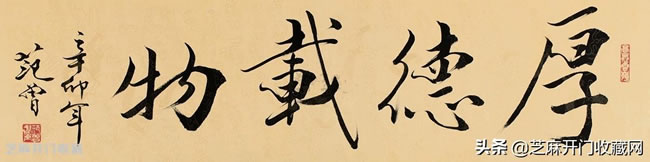 厚德載物
辛卯年
范曾
头条 @芝麻开门收藏网